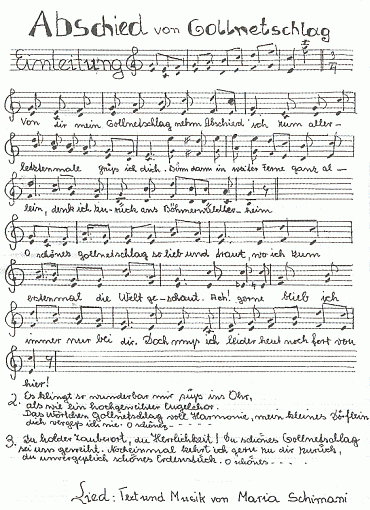 Abschied von Gollnetschlag
Einleitung
Von dir mein Gollnetschlag nehm Abschied ich zum aller-
letztenmale grüß ich dich. Bin dann in weiter Ferne ganz al-
lein, denk ich zu-rück ans Böhmerwäldler-heim
O schönes Gollnetschlag so lieb und traut, wo ich zum
erstenmal die Welt ge-schaut. Ach! gerne blieb ich
immer nur bei dir. Doch muß ich leider heut noch fort von
hier!
2. Es klingt so wunderbar mir süß ins Ohr,
als wie ein hochgeweihter Engelchor.
Das Wörtchen Gollnetschlag voll Harmonie, mein kleines Dörflein
dich vergeß ich nie. O schönes - - - - -
3. Du holder Zauberort, du Herrlichkeit! Du schönes Gollnetschlag
sei uns geweiht. Nocheinmal kehrt ich gern zu dir zurück,
du unvergeßlich schönes Erdenstück. O schönes - - -
Lied: Text und Musik von Maria Schimani